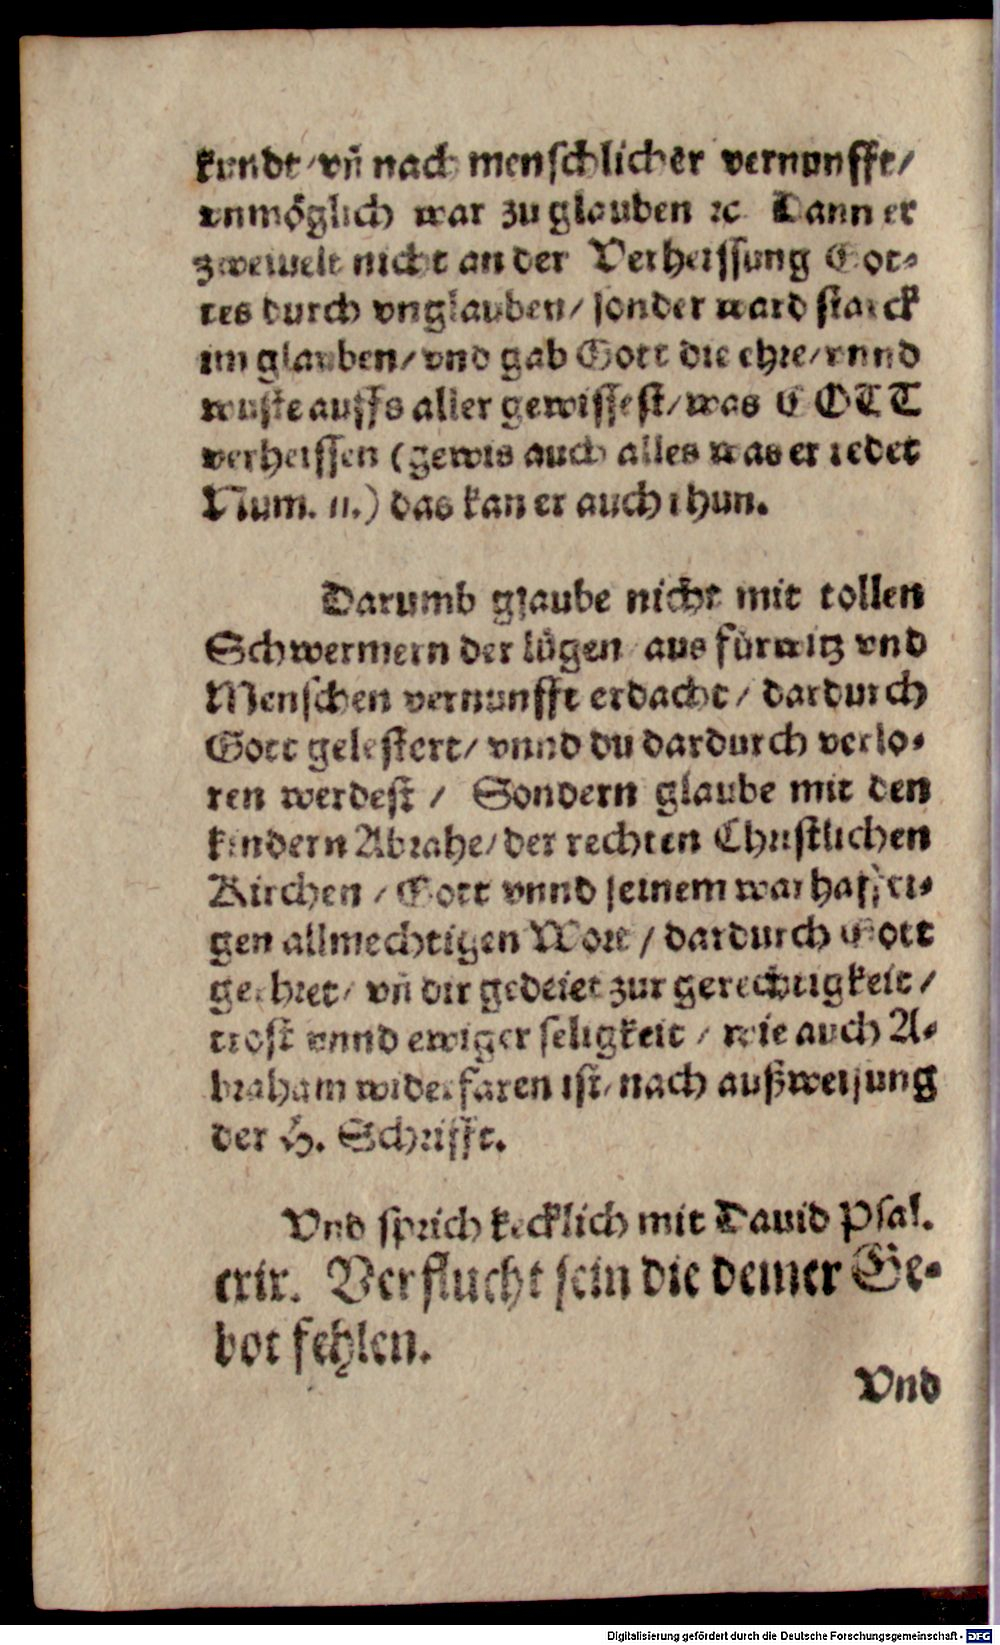 kundt/vñ nach menschlicher vernunfft/
vnmöglich war zu glauben ꝛc. Dann er
zweiuelt nicht an der Verheissung Got⸗
tes durch vnglauben/ sonder ward starck
im glauben/ vnd gab Gott die ehre/ vnnd
wuste auffs aller gewissest/ was GOTT
verheissen (gewis auch alles was er redet
Num. 11.) das kan er auch thun.
Darumb glaube nicht mit tollen
Schwermern der lügen aus fürwitz vnd
Menschen vernunfft erdacht/ dardurch
Gott gelestert/ vnnd du dardurch verlo⸗
ren werdest/ Sondern glaube mit den
kindern Abrahe/ der rechten Christlichen
Kirchen/ Gott vnnd seinem warhaffti⸗
gen allmechtigen Wort/ dardurch Gott
geehret/ vñ dir gedeiet zur gerechtigkeit/
trost vnnd ewiger seligkeit/ wie auch A⸗
braham widerfaren ist/ nach außweisung
der H. Schrifft.
Vnd sprich kecklich mit Dauid Psal.
cxix. Verflucht sein die deiner Ge⸗
bot fehlen.
Vnd
Digitalisierung gefördert durch die Deutsche Forschungsgemeinschaft - DFG